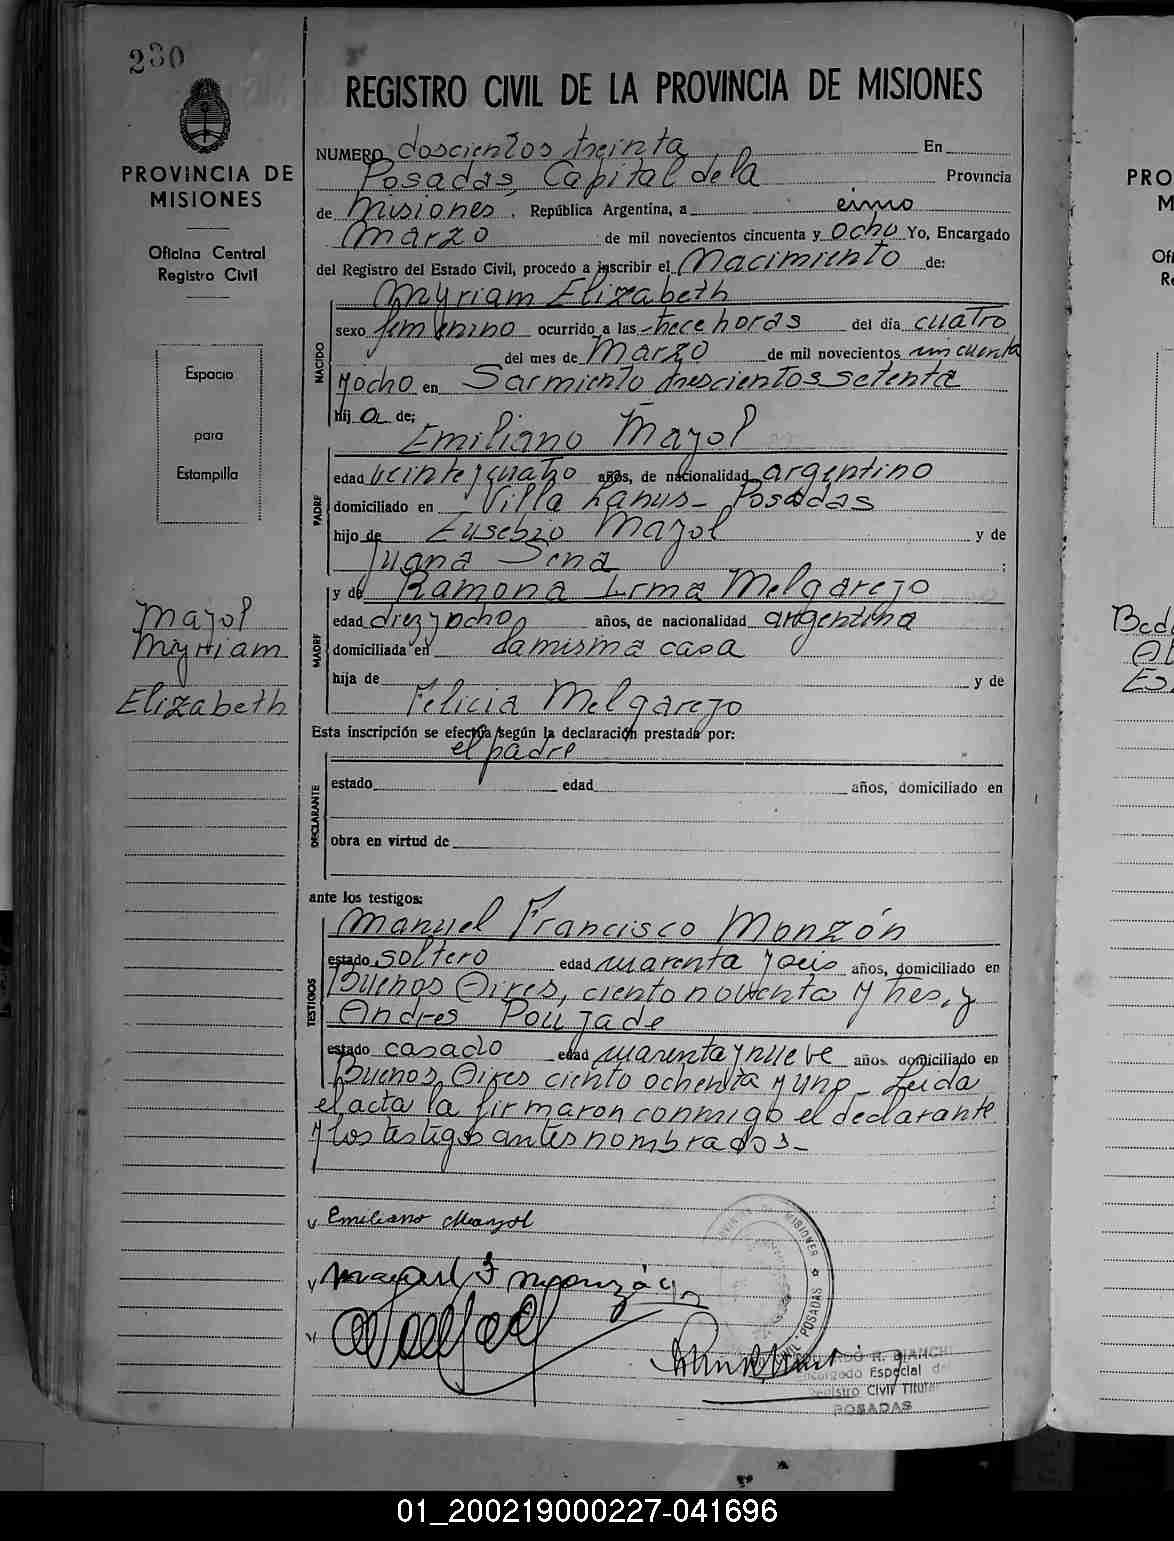 230
PROVINCIA DE
MISIONES
Oficina Central
Registro Civil
Espacio
para
Estampilla
Mayol
Myriam
Elizabeth
REGISTRO CIVIL DE LA PROVINCIA DE MISIONES
NUMERO doscientos treinta En
Posadas, Capital de la Provincia
de Misiones, República Argentina, a cinco
Marzo de mil novecientos cincuenta y ocho Yo, Encargado
del Registro del Estado Civil, procedo a inscribir el Nacimiento de:
Myriam Elizabeth
NACIDO
sexo femenino ocurrido a las trece horas del día cuatro
del mes de Marzo de mil novecientos cincuenta
y ocho en Sarmiento trescientos setenta
hija de:
Emiliano Mayol
PADRE
edad veinte y cuatro años, de nacionalidad argentino
domiciliado en Villa Lanus - Posadas
hijo de Eusebio Mayol y de
Juana Sena ;
y de Ramona Irma Melgarejo
MADRE
edad diez y ocho años, de nacionalidad argentina
domiciliada en la misma casa
hija de y de
Felicia Melgarejo
Esta inscripción se efectúa según la declaración prestada por:
el padre
DECLARANTE
estado edad años, domiciliado en
obra en virtud de
ante los testigos:
Manuel Francisco Monzón
TESTIGOS
estado soltero edad cuarenta y seis años, domiciliado en
Buenos Aires, ciento noventa y tres, y
Andres Poujade
estado casado edad cuarenta y nueve años, domiciliado en
Buenos Aires ciento ochenta y uno - Leida
el acta la firmaron conmigo el declarante
y los testigos antes nombrados -
Emiliano Mayol
Manuel F Monzón
MISIONES
POSADAS
R. BIANCHI
Encargado Especial del
Registro Civil Titular
POSADAS
PRO
M
Ofi
Re
01_200219000227-041696